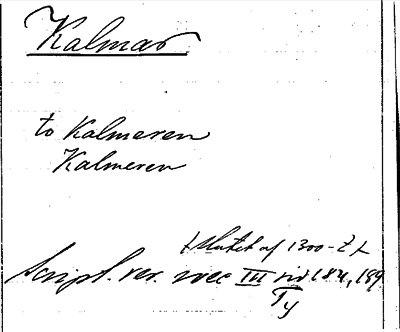 Kalmar
to Kalmeren
Kalmeren
(Slutet af 1300-t.)
Script. rer. svec III sid 184, 189
Ty